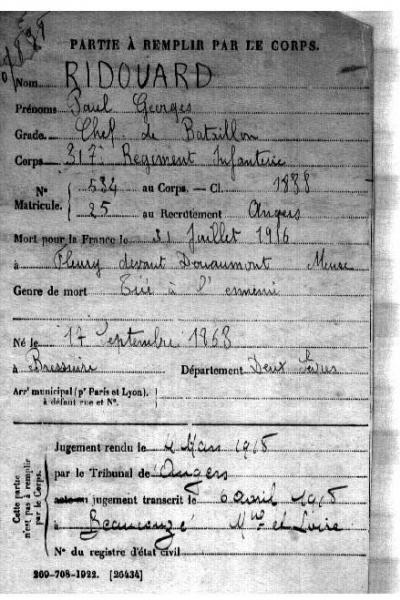 PARTIE À REMPLIR PAR LE CORPS.
Nom RIDOUARD
Prénoms Paul Georges
Grade Chef de Bataillon
Corps 317e Régiment Infanterie
N° Matricule. 534 au Corps. — Cl. 1888
25 au Recrutement Angers
Mort pour la France le 31 Juillet 1916
à Fleury devant Douaumont Meuse
Genre de mort Tué à l'ennemi
Né le 17 Septembre 1868
à Bressuire Département Deux Sèvres
Arrt municipal (pr Paris et Lyon),
à défaut rue et N°.
Cette partie n'est pas à remplir par le Corps.
Jugement rendu le 4 Mars 1918
par le Tribunal de Angers
acte ou jugement transcrit le 6 avril 1918
à Beaucouzé Mne et Loire
N° du registre d'état civil
209-708-1922. [26434]